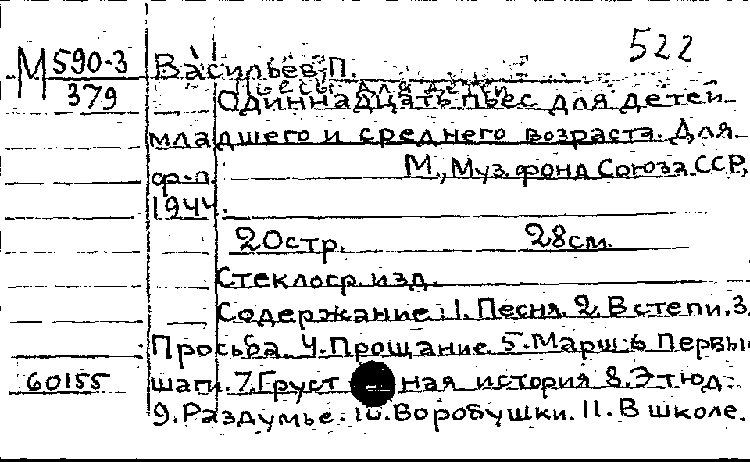 522
М 590-3
379
Васильев, П.
Пьесы для детей
Одиннадцать пьес для детей
младшего и среднего возраста. Для
ф-п. М., Муз. фонд Союза ССР,
1944.
20 стр. 28 см.
Стеклогр. изд.
Содержание: 1. Песня. 2. В степи. 3.
Просьба. 4. Прощание. 5. Марш. 6. Первы
шаги. 7. Груст ная история 8. Этюд.
60155
9. Раздумье. 10. Воробушки. 11. В школе.